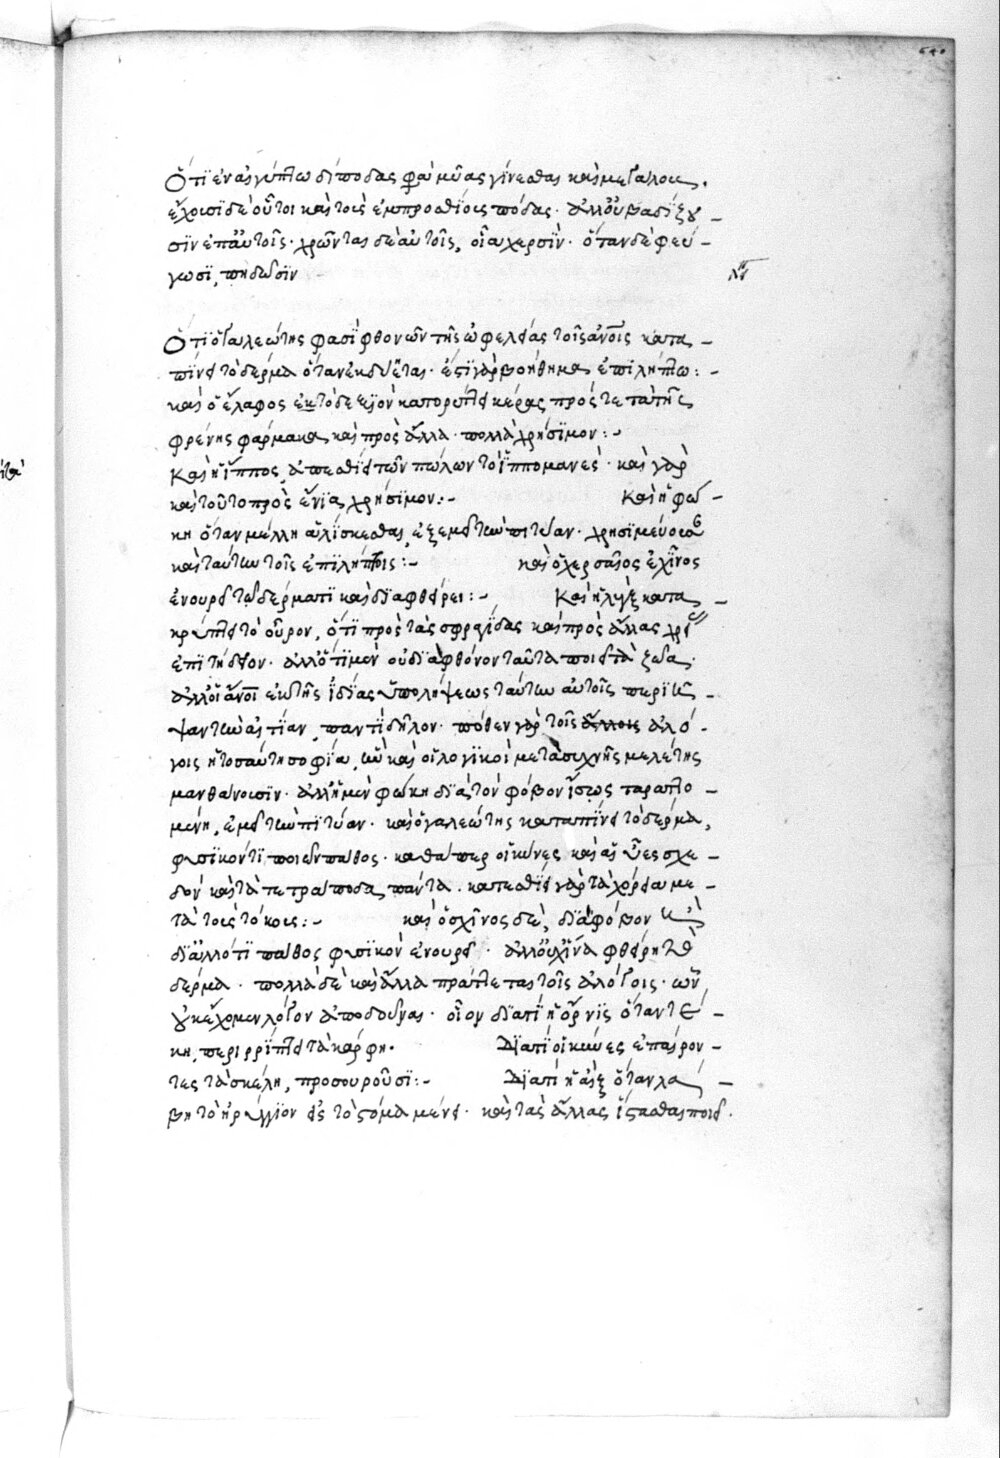 Ὅτι ἐν αἰγύπτω δίποδας φα μῦας γίνεσθαι καὶ μεγάλους.
ἔχουσι δὲ οὗτοι καὶ τοὺς ἐμπροσθίους πόδας. ἀλλ' οὐ βαδίζου-
σιν ἐπ' αὐτοῖς. χρῶνται δὲ αὐτοῖς, οἷα χερσίν. ὅταν δὲ φεύ-
γωσι, πηδῶσιν
Ὅτι ὁ γαλεώτης φασὶ φθονῶν τῆς ὠφελείας τοῖς ἀνοις κατα-
πίνει τὸ δέρμα ὅταν ἐκδύηται. ἔστι γὰρ βοήθημα ἐπιλήπτω:-
καὶ ὁ ἔλαφος ἐκ τὸ δεξιὸν κατορύττει κέρας πρός τε τὰ τῆς
φρύνης φάρμακα καὶ πρὸς ἄλλα πολλὰ χρήσιμον:-
Καὶ ἡ ἵππος ἀπεσθίει τῶν πώλων τὸ ἱππομανές. καὶ γὰρ
καὶ τοῦτο πρὸς ἔνια χρήσιμον:- Καὶ ἡ φώ-
κη ὅταν μέλλη ἁλίσκεσθαι, ἐξεμεῖ τὴν πιτύαν. χρησιμεύουσαν
καὶ ταύτην τοῖς ἐπιλήπτοις:- καὶ ὁ χερσαῖος ἐχῖνος
ἐνουρεῖ τῶ δέρματι καὶ διαφθείρει:- Καὶ ἡ λὺγξ κατα-
κρύπτει τὸ οὖρον, ὅτι πρὸς τὰς σφραγίδας καὶ πρὸς ἄλλας χρεί
ἐπιτήδειον. ἀλλ' ὅτι μὲν οὐ διὰ φθόνον ταῦτα ποιεῖ τὰ ζῶα,
ἀλλ' οἱ ἄνοι ἐκ τῆς ἰδίας ὑπολήψεως ταύτην αὐτοῖς περιῆ-
ψαν τὴν αἰτίαν, παντὶ δῆλον. πόθεν γὰρ τοῖς ἄλλοις ἀλό-
γοις ἡ τοσαύτη σοφία, ἣν καὶ οἱ λογικοὶ μετὰ συχνῆς μελέτης
μανθάνουσιν. ἀλλ' ἡ μὲν φώκη διὰ τὸν φόβον ἴσως ταραττο-
μένη, ἐμεῖ τὴν πιτύαν. καὶ ὁ γαλεώτης καταπίνει τὸ δέρμα,
φυσικόν τι ποιῶν πάθος. καθάπερ οἱ κύνες καὶ αἱ ὗες σχε-
δὸν καὶ τὰ τετράποδα πάντα. κατεσθίει γὰρ τὰ χόρεια με-
τὰ τοὺς τόκους:- καὶ ὁ ἐχῖνος δὲ, διὰ φόβον καὶ
δι' ἄλλό τι πάθος φυσικὸν ἐνουρεῖ. ἀλλ' οὐχ ἵνα φθείρη τὸ
δέρμα. πολλὰ δὲ καὶ ἄλλα πράττεται τοῖς ἀλόγοις. ὧν
οὐκ ἔχομεν λόγον ἀποδοῦναι. οἷον διατί ἡ ὄρνις ὅταν τέ-
κη, περιρρίπτει τὰ κάρφη. Διατί οἱ κύνες ἐπαίρον-
τες τὰ σκέλη, προσουροῦσι:- Διατί ἡ αἲξ ὅταν λά-
βη τὸ ἠρύγγιον εἰς τὸ στόμα μένει. καὶ τὰς ἄλλας ἵστασθαι ποιεῖ.